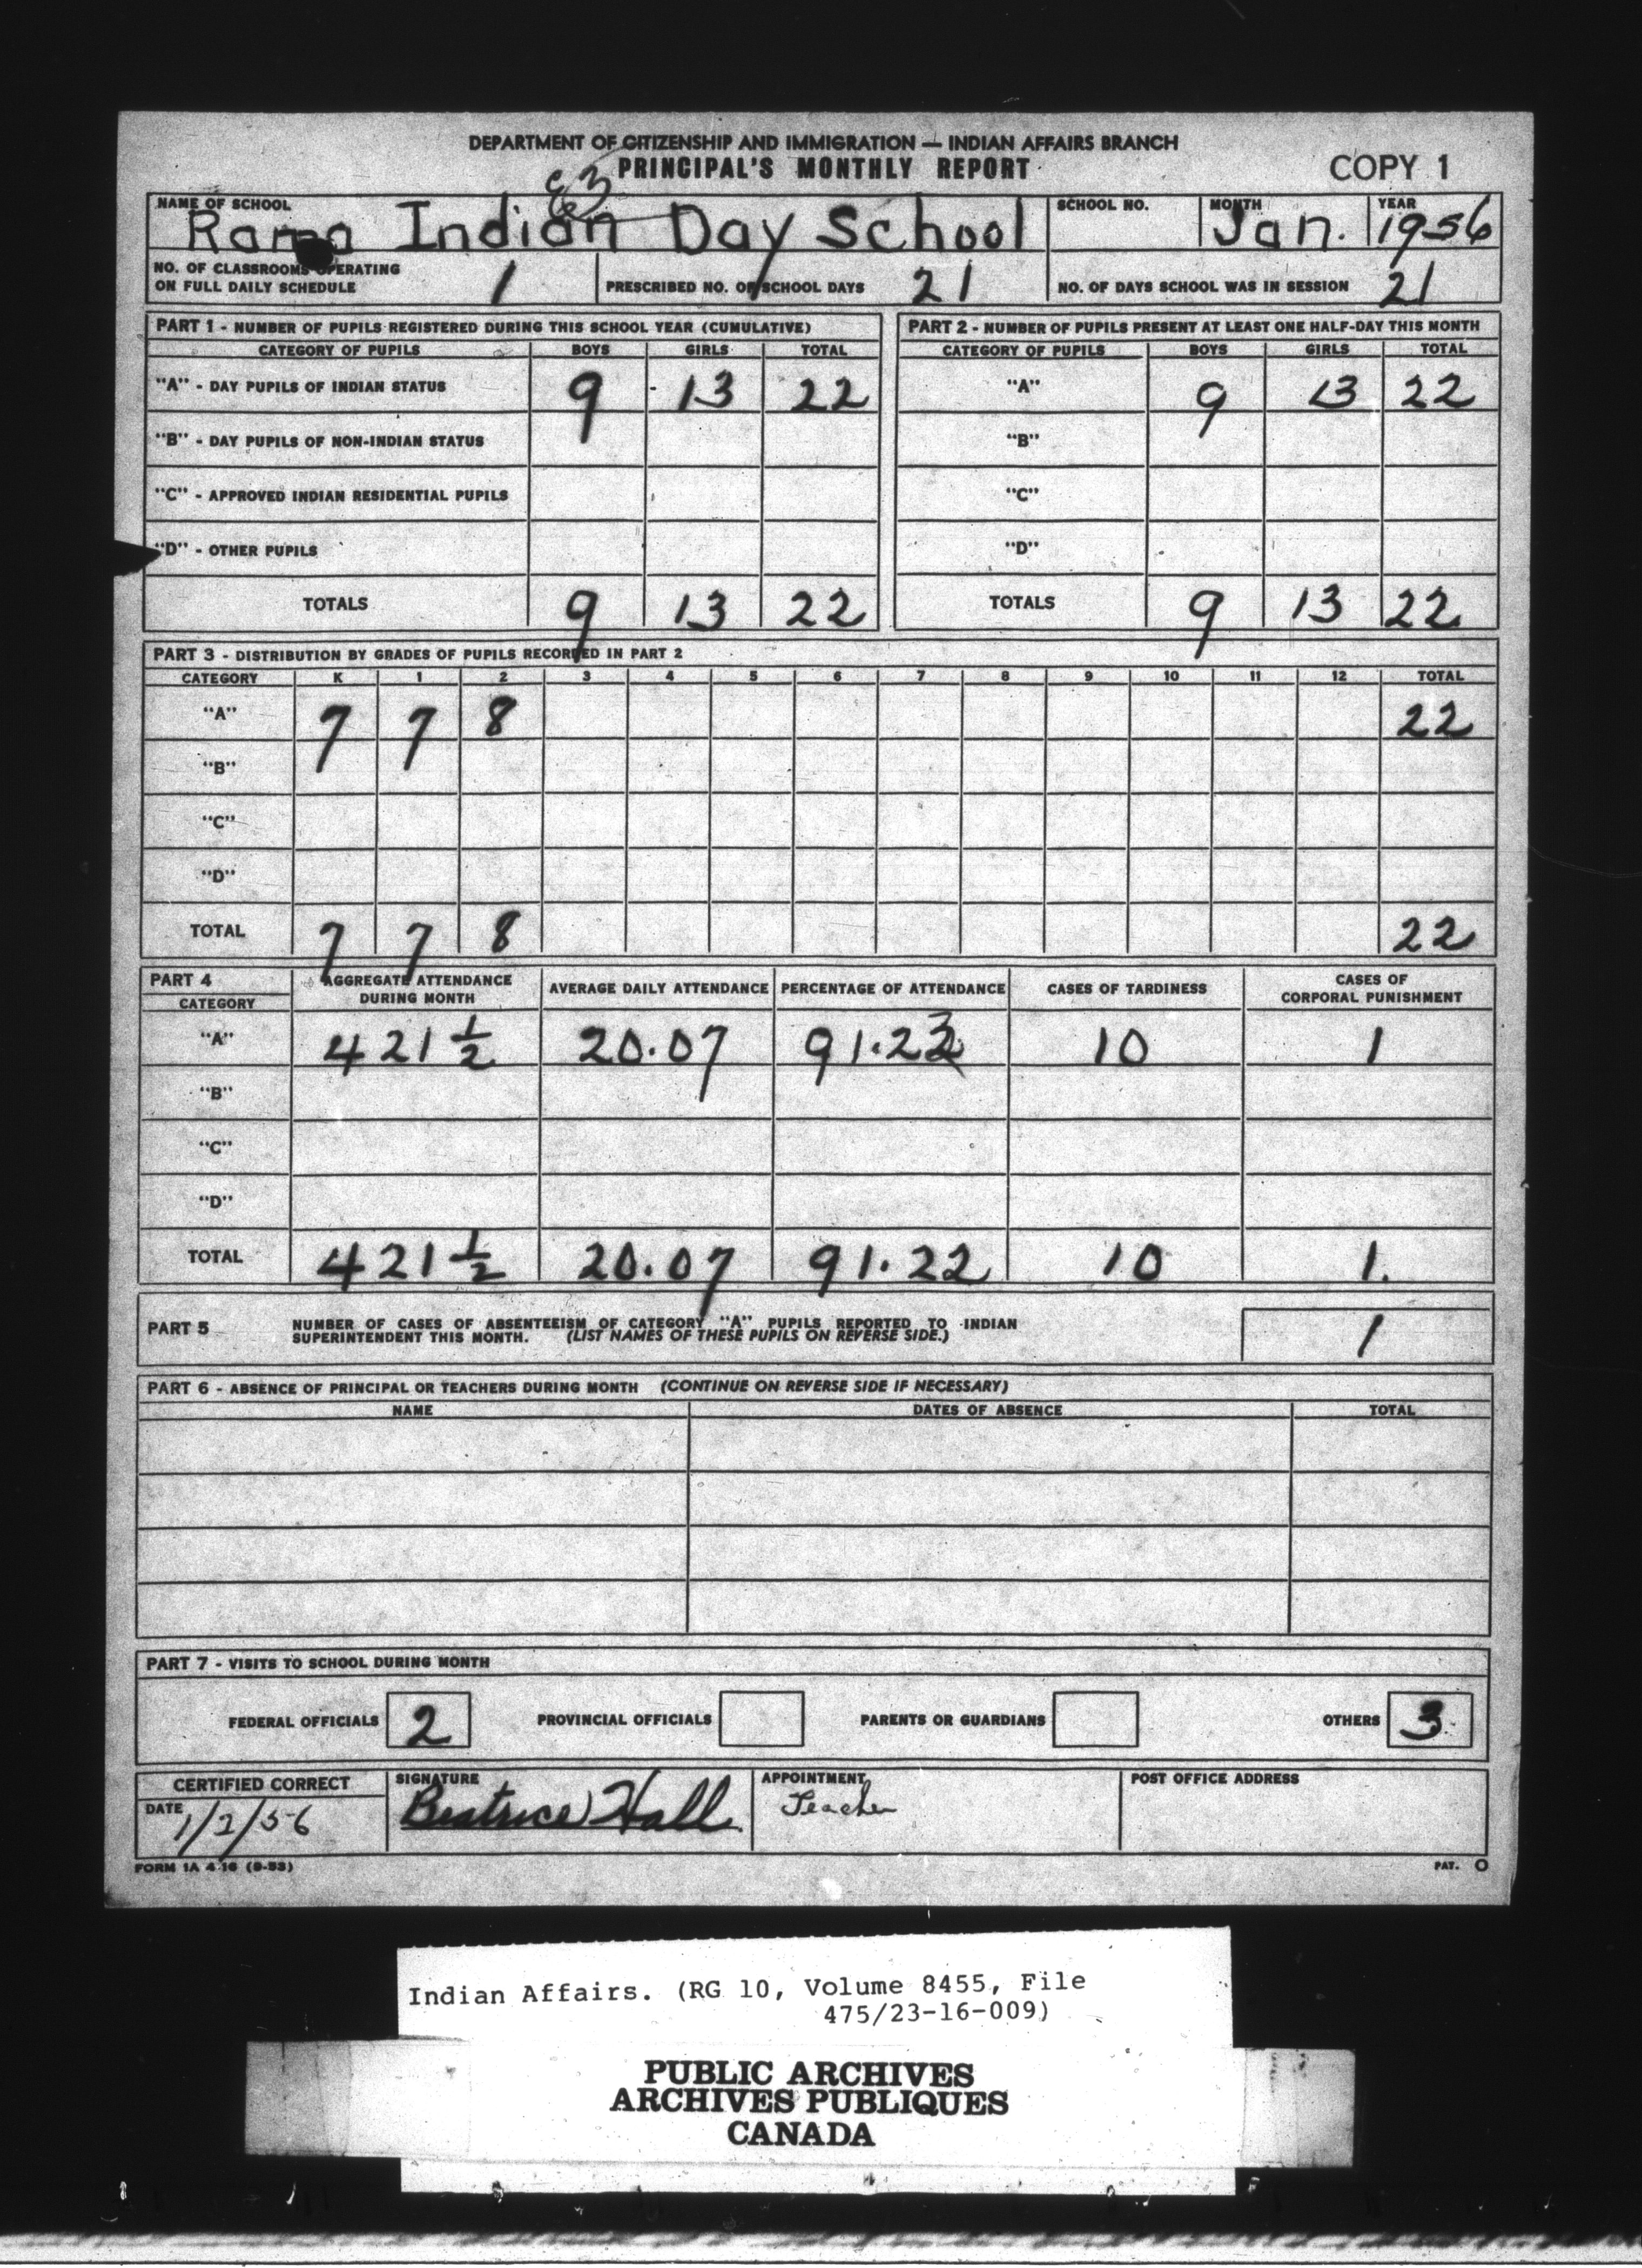 DEPARTMENT OF CITIZENSHIP AND IMMIGRATION — INDIAN AFFAIRS BRANCH
PRINCIPAL'S MONTHLY REPORT
COPY 1
NAME OF SCHOOL SCHOOL NO. MONTH YEAR
Rama Indian Day School Jan. 1956
NO. OF CLASSROOMS OPERATING
ON FULL DAILY SCHEDULE 1 PRESCRIBED NO. OF SCHOOL DAYS 21 NO. OF DAYS SCHOOL WAS IN SESSION 21
PART 1 - NUMBER OF PUPILS REGISTERED DURING THIS SCHOOL YEAR (CUMULATIVE)
CATEGORY OF PUPILS BOYS GIRLS TOTAL
"A" - DAY PUPILS OF INDIAN STATUS 9 13 22
"B" - DAY PUPILS OF NON-INDIAN STATUS
"C" - APPROVED INDIAN RESIDENTIAL PUPILS
"D" - OTHER PUPILS
TOTALS 9 13 22
PART 2 - NUMBER OF PUPILS PRESENT AT LEAST ONE HALF-DAY THIS MONTH
CATEGORY OF PUPILS BOYS GIRLS TOTAL
"A" 9 13 22
"B"
"C"
"D"
TOTALS 9 13 22
PART 3 - DISTRIBUTION BY GRADES OF PUPILS RECORDED IN PART 2
CATEGORY K 1 2 3 4 5 6 7 8 9 10 11 12 TOTAL
"A" 7 7 8 22
"B"
"C"
"D"
TOTAL 7 7 8 22
PART 4
CATEGORY AGGREGATE ATTENDANCE DURING MONTH AVERAGE DAILY ATTENDANCE PERCENTAGE OF ATTENDANCE CASES OF TARDINESS CASES OF CORPORAL PUNISHMENT
"A" 421 1/2 20.07 91.22 10 1
"B"
"C"
"D"
TOTAL 421 1/2 20.07 91.22 10 1.
PART 5 NUMBER OF CASES OF ABSENTEEISM OF CATEGORY "A" PUPILS REPORTED TO INDIAN
SUPERINTENDENT THIS MONTH. (LIST NAMES OF THESE PUPILS ON REVERSE SIDE.) 1
PART 6 - ABSENCE OF PRINCIPAL OR TEACHERS DURING MONTH (CONTINUE ON REVERSE SIDE IF NECESSARY)
NAME DATES OF ABSENCE TOTAL
PART 7 - VISITS TO SCHOOL DURING MONTH
FEDERAL OFFICIALS 2 PROVINCIAL OFFICIALS PARENTS OR GUARDIANS OTHERS 3
CERTIFIED CORRECT SIGNATURE APPOINTMENT POST OFFICE ADDRESS
DATE 1/2/56 Beatrice Hall Teacher
FORM 1A 4-16 (9-53) PAT. O
Indian Affairs. (RG 10, Volume 8455, File
475/23-16-009)
PUBLIC ARCHIVES
ARCHIVES PUBLIQUES
CANADA